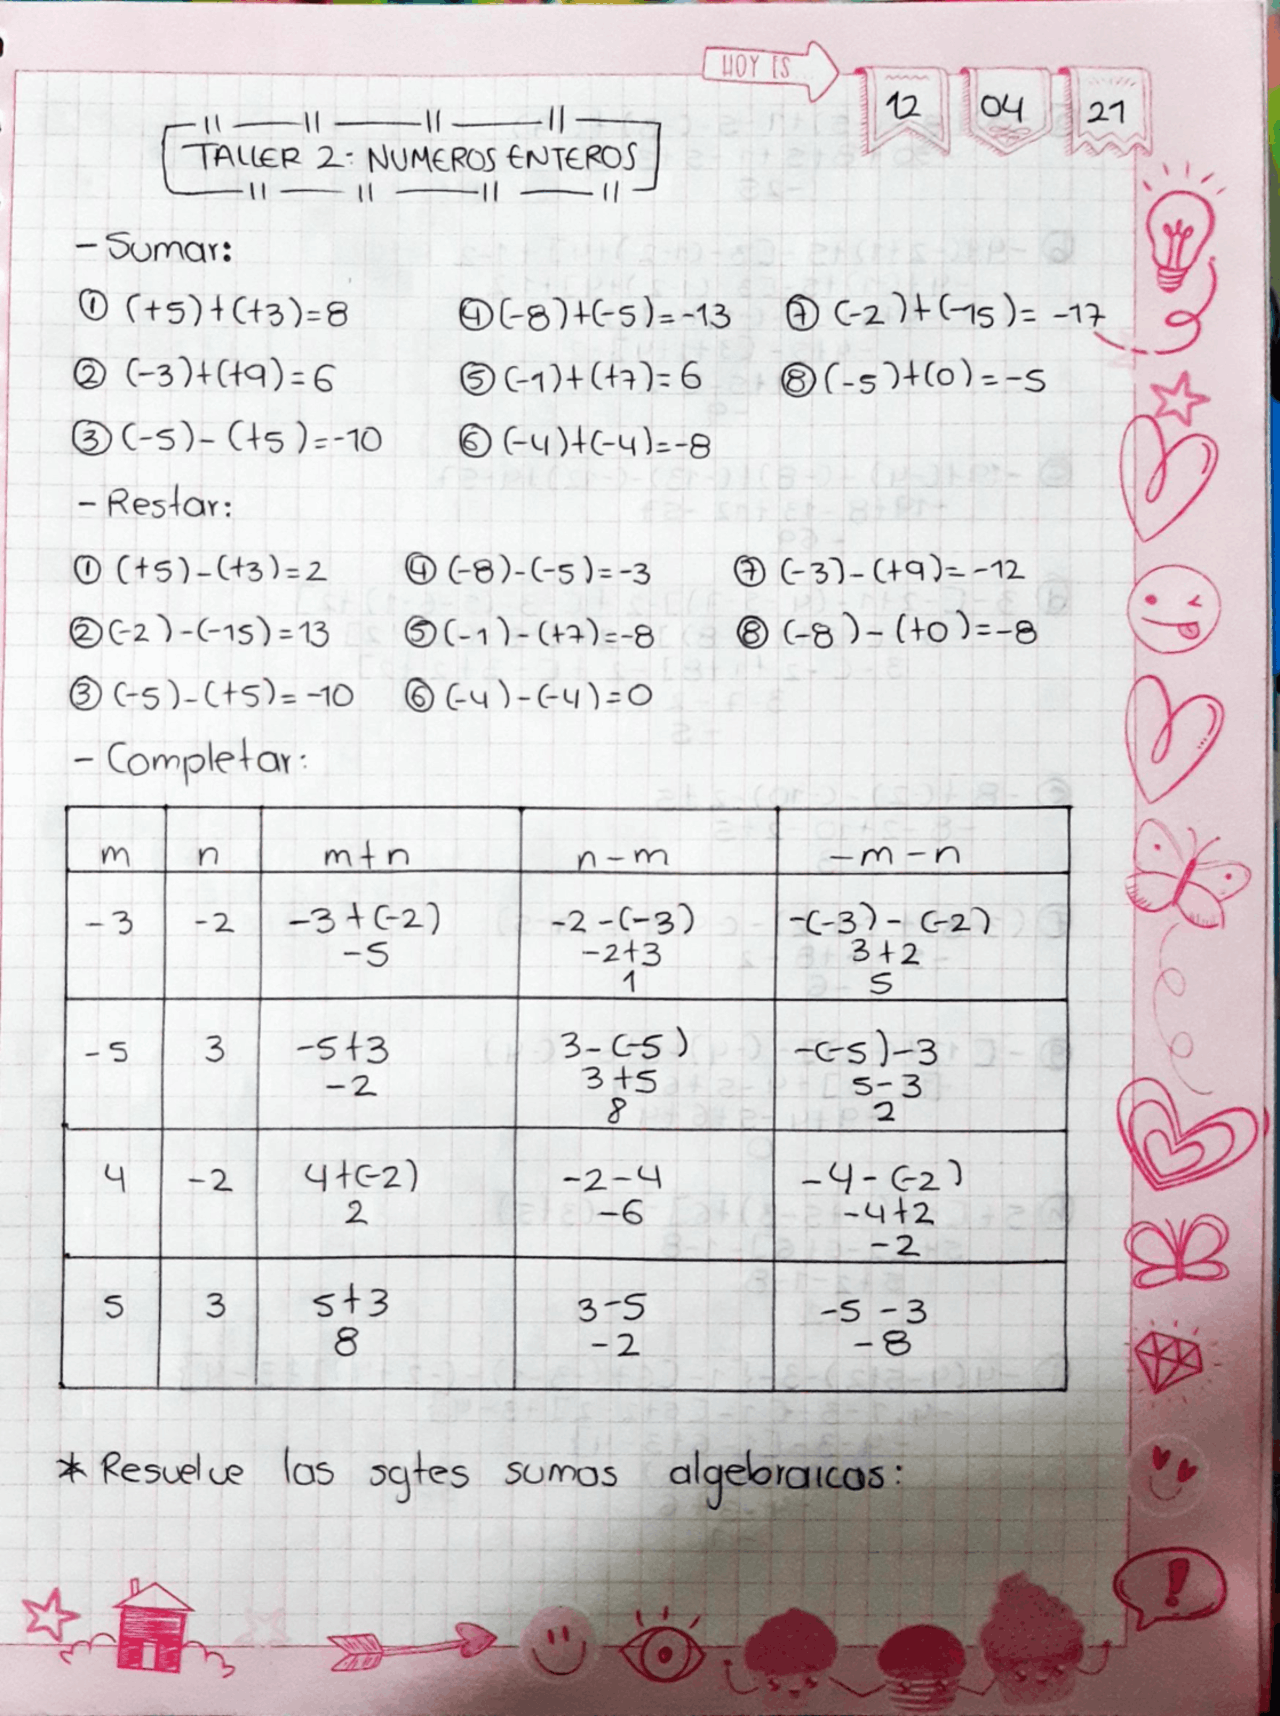 HOY ES
12 04 21
TALLER 2: NUMEROS ENTEROS
- Sumar:
① (+5)+(+3)=8 ④ (-8)+(-5)=-13 ⑦ (-2)+(-15)= -17
② (-3)+(+9)=6 ⑤ (-1)+(+7)=6 ⑧ (-5)+(0)=-5
③ (-5)-(+5)=-10 ⑥ (-4)+(-4)=-8
- Restar:
① (+5)-(+3)=2 ④ (-8)-(-5)=-3 ⑦ (-3)-(+9)=-12
② (-2)-(-15)=13 ⑤ (-1)-(+7)=-8 ⑧ (-8)-(+0)=-8
③ (-5)-(+5)= -10 ⑥ (-4)-(-4)=0
- Completar:
m n m+n n-m -m-n
-3 -2 -3+(-2) -2-(-3) -(-3)-(-2)
-5 -2+3 3+2
1 5
-5 3 -5+3 3-(-5) -(-5)-3
-2 3+5 5-3
8 2
4 -2 4+(-2) -2-4 -4-(-2)
2 -6 -4+2
-2
5 3 5+3 3-5 -5-3
8 -2 -8
* Resuelve las sgtes sumas algebraicas: